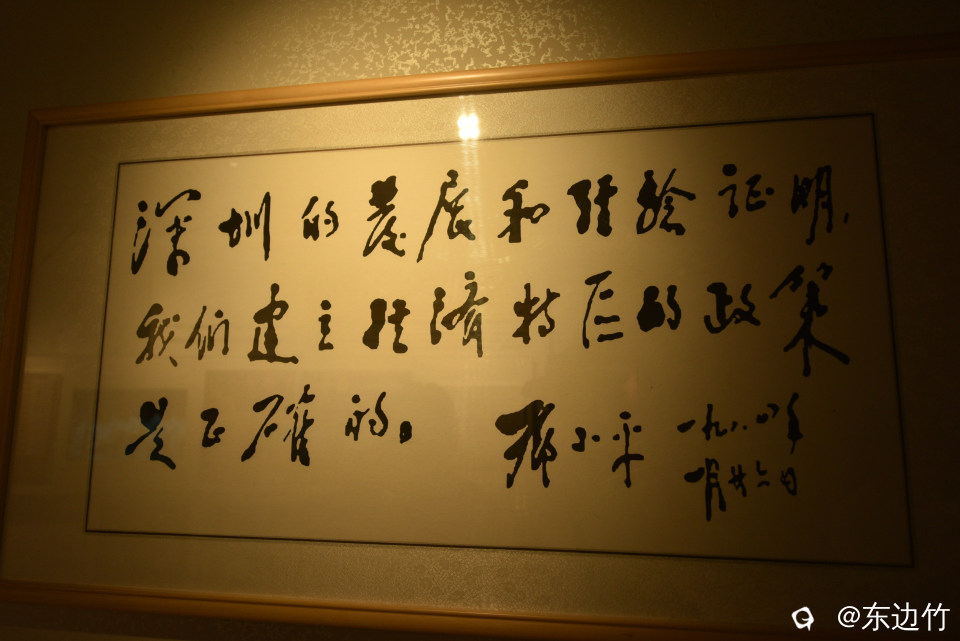 深圳的发展和经验证明，
我们建立经济特区的政策
是正确的。
邓小平 一九八四年
一月廿六日
@东边竹